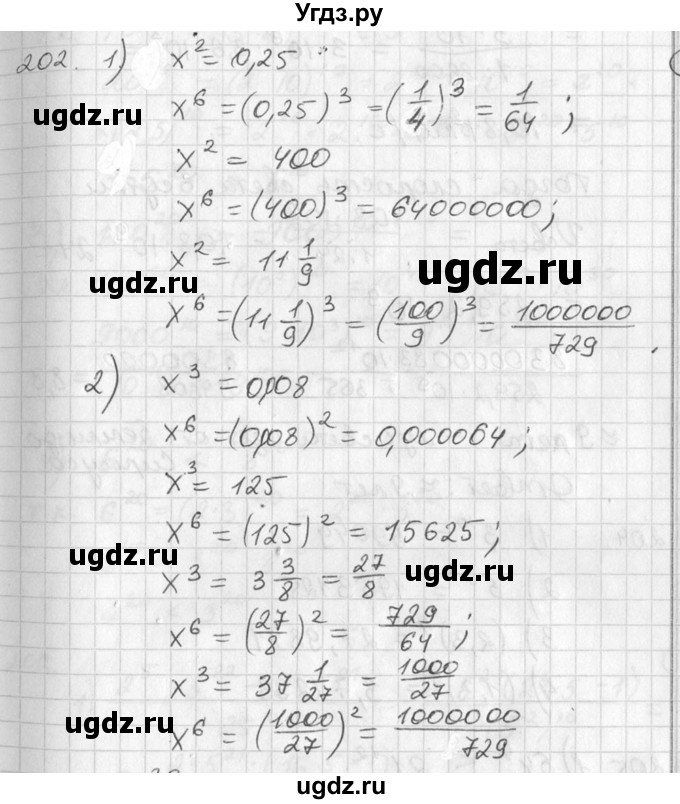 Угдз.ру
202. 1) x² = 0,25
x⁶ = (0,25)³ = (1/4)³ = 1/64 ;
ugdz.ru
x² = 400
x⁶ = (400)³ = 64000000;
x² = 11 1/9
ugdz.ru
ugdz.ru
x⁶ = (11 1/9)³ = (100/9)³ = 1000000/729 .
2) x³ = 0,008
x⁶ = (0,008)² = 0,000064;
x³ = 125
x⁶ = (125)² = 15625;
ugdz.ru
ugdz.ru
x³ = 3 3/8 = 27/8
x⁶ = (27/8)² = 729/64 ;
x³ = 37 1/27 = 1000/27
ugdz.ru
ugdz.ru
x⁶ = (1000/27)² = 1000000/729
ugdz.ru